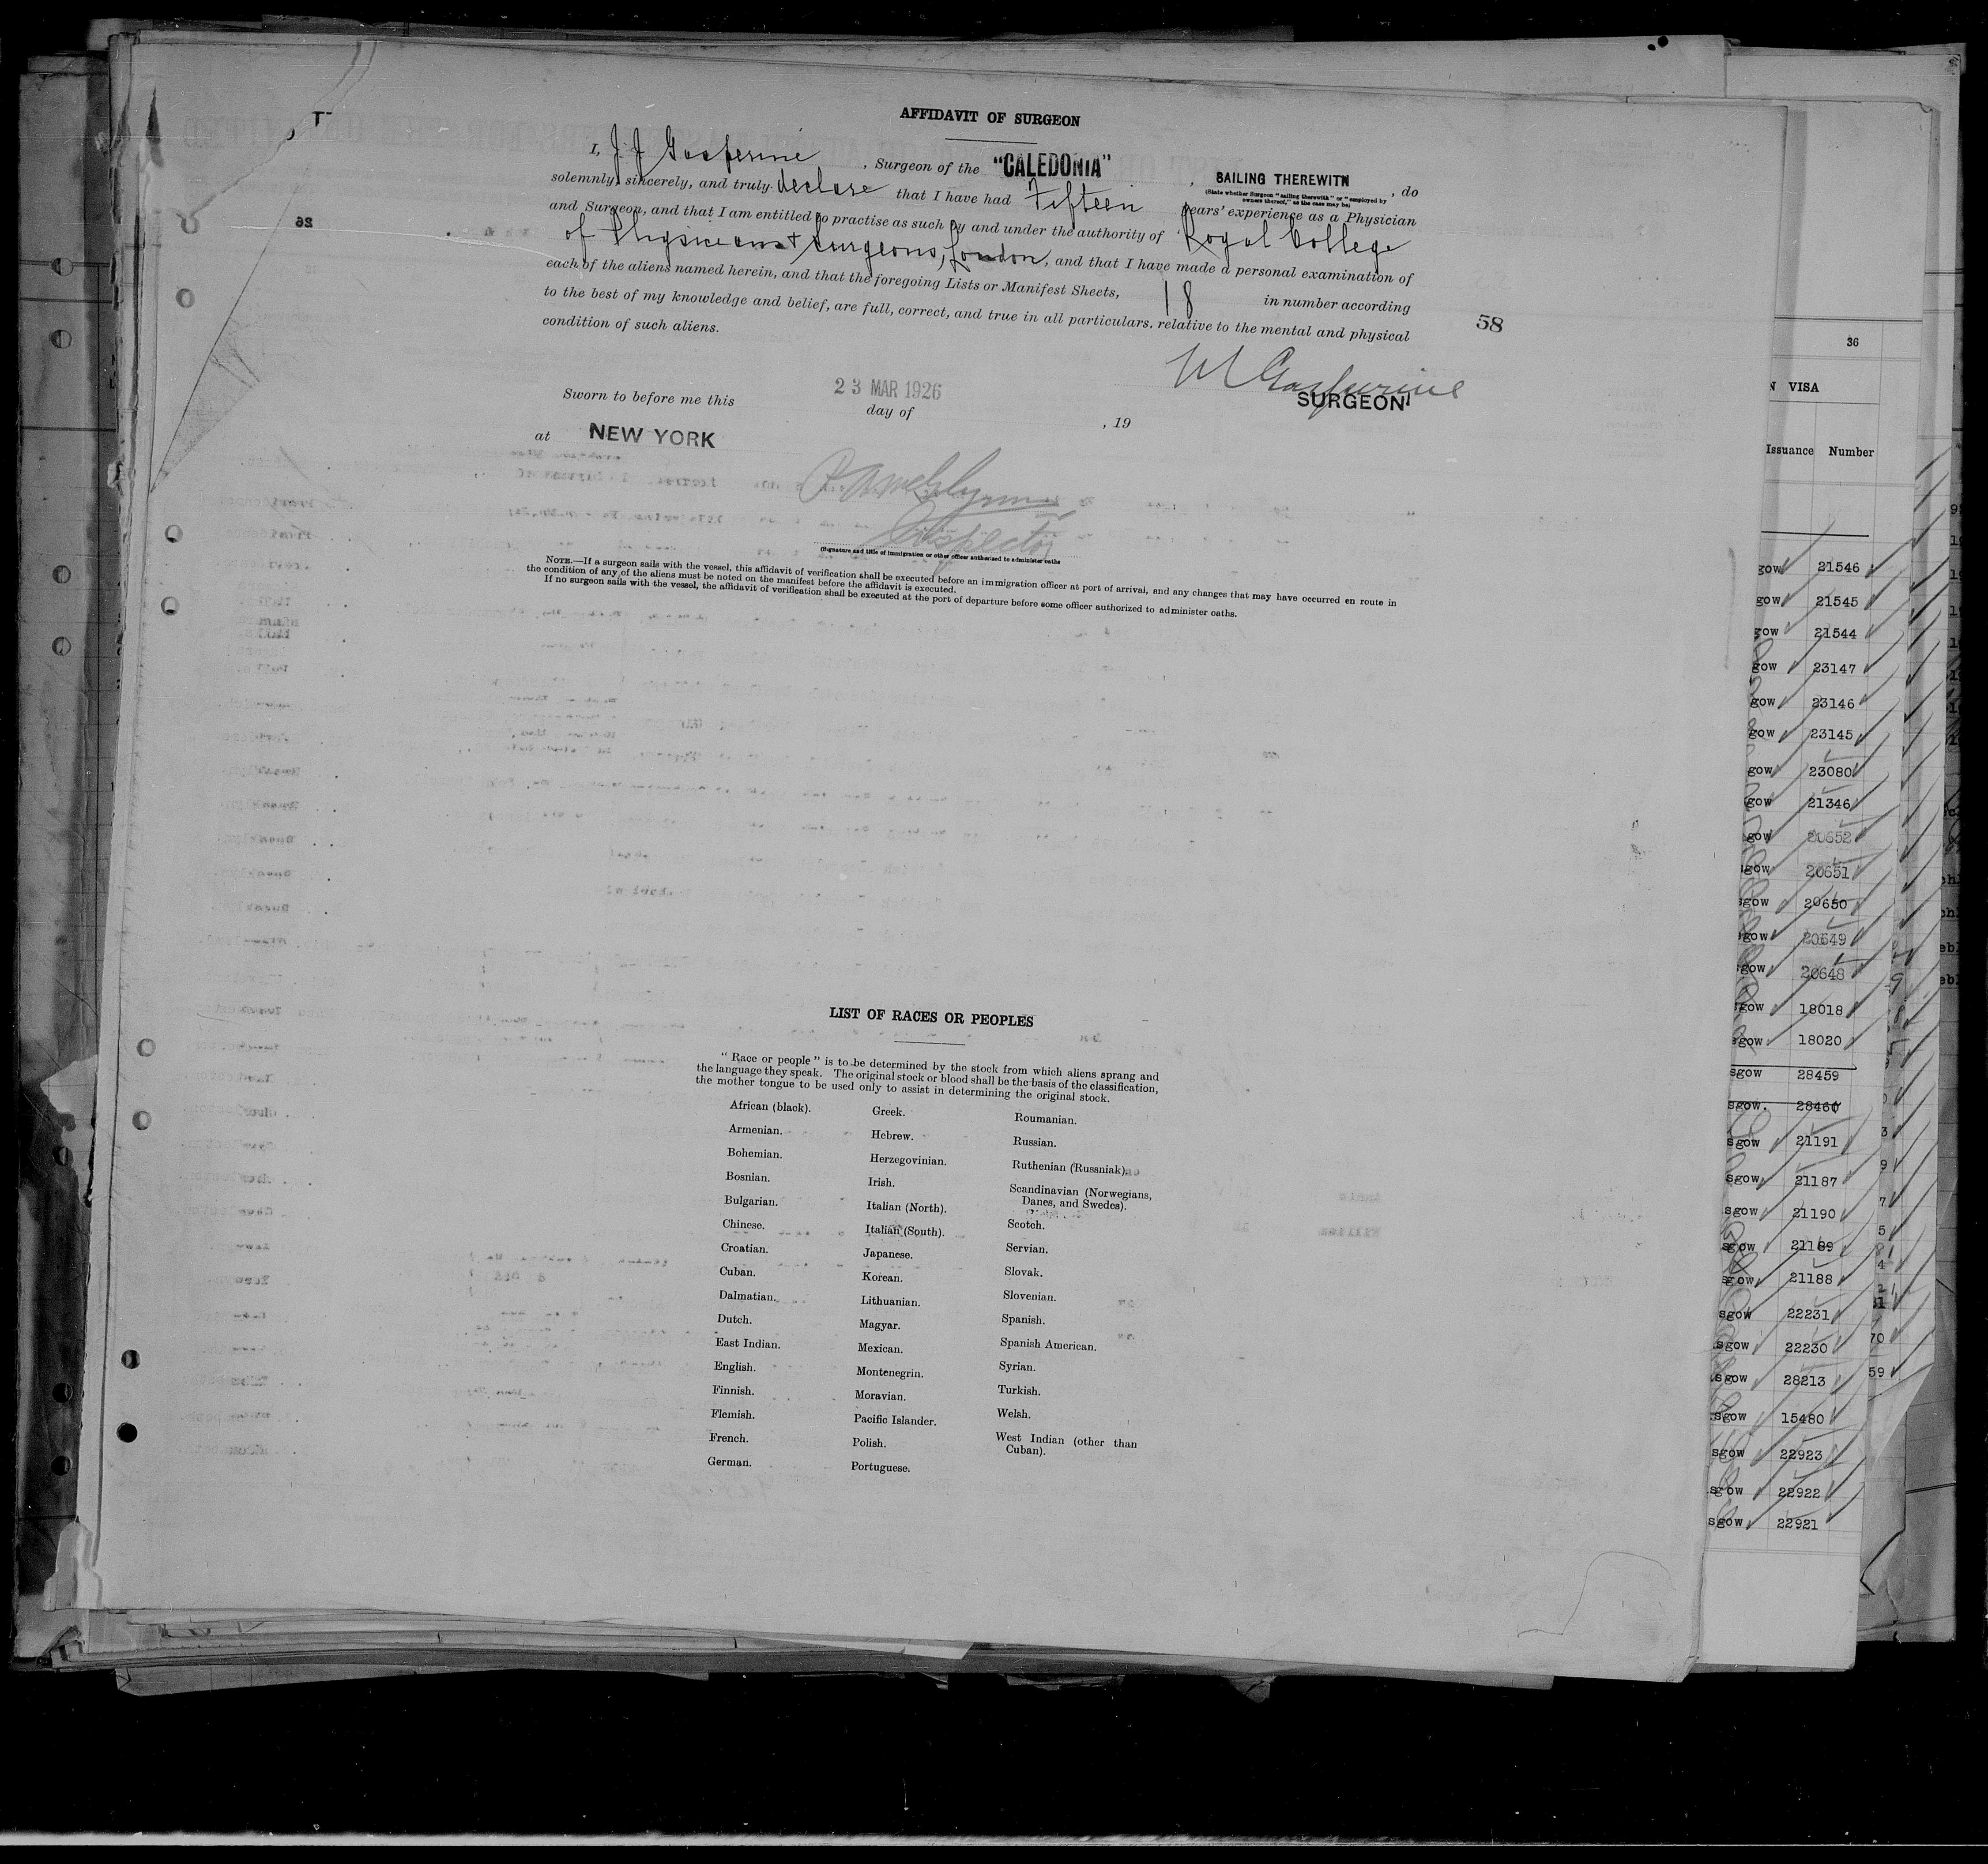 AFFIDAVIT OF SURGEON
I, J J Gasperine, Surgeon of the "CALEDONIA", SAILING THEREWITH, do
(State whether Surgeon "sailing therewith" or "employed by
owners thereof," as the case may be)
solemnly, sincerely, and truly declare that I have had Fifteen years' experience as a Physician
and Surgeon, and that I am entitled to practise as such by and under the authority of Royal College
of Physicians & Surgeons, London, and that I have made a personal examination of
each of the aliens named herein, and that the foregoing Lists or Manifest Sheets, 18 in number according
to the best of my knowledge and belief, are full, correct, and true in all particulars. relative to the mental and physical
condition of such aliens.
58
SURGEON
Sworn to before me this 23 MAR 1926 day of , 19
at NEW YORK
Inspector
(Signature and title of immigration or other officer authorized to administer oaths
NOTE.—If a surgeon sails with the vessel, this affidavit of verification shall be executed before an immigration officer at port of arrival, and any changes that may have occurred en route in
the condition of any of the aliens must be noted on the manifest before the affidavit is executed.
If no surgeon sails with the vessel, the affidavit of verification shall be executed at the port of departure before some officer authorized to administer oaths.
LIST OF RACES OR PEOPLES
"Race or people" is to be determined by the stock from which aliens sprang and
the language they speak. The original stock or blood shall be the basis of the classification,
the mother tongue to be used only to assist in determining the original stock.
African (black).
Armenian.
Bohemian.
Bosnian.
Bulgarian.
Chinese.
Croatian.
Cuban.
Dalmatian.
Dutch.
East Indian.
English.
Finnish.
Flemish.
French.
German.
Greek.
Hebrew.
Herzegovinian.
Irish.
Italian (North).
Italian (South).
Japanese.
Korean.
Lithuanian.
Magyar.
Mexican.
Montenegrin.
Moravian.
Pacific Islander.
Polish.
Portuguese.
Roumanian.
Russian.
Ruthenian (Russniak).
Scandinavian (Norwegians,
Danes, and Swedes).
Scotch.
Servian.
Slovak.
Slovenian.
Spanish.
Spanish American.
Syrian.
Turkish.
Welsh.
West Indian (other than
Cuban).
36
N VISA
Issuance Number
gow 21546
gow 21545
gow 21544
gow 23147
gow 23146
gow 23145
gow 23080
gow 21346
gow 20652
gow 20651
sgow 20650
gow 20649
gow 20648
gow 18018
sgow 18020
sgow 28459
sgow. 28460
sgow 21191
sgow 21187
sgow 21190
sgow 21189
sgow 21188
sgow 22231
sgow 22230
sgow 28213
sgow 15480
sgow 22923
sgow 22922
sgow 22921